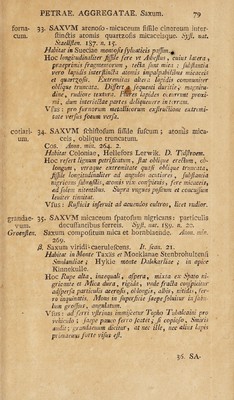 PETRAE. AGGREGATAE. Saxum. 79
forna- 33. SAXVM arenoso-micaceum fissile cinereum inter-
cum. stinctis atomis quartzosis micaceisque. Syst. nat.
Stensillen. 187. n. 15.
Habitat in Sueciae montosis sylvaticis passim
Hoc longitudinaliter fissile fere vt Asbestus, cuius latera
praeprimis fragmentorum, recta sunt modo asbestini;
vero lapidis interstincta atomis impalpabilibus micaceis
et quartzosis. Extremitas altera lapidis communiter
oblique truncata. Differt a sequenti duritie, magnitu-
dine, rudiore textura. Haeret lapides extorrent proxi-
mi, dum interiectae partes deliquescere in terram.
Vsus: pro fornacum metallicorum exstructione extremi-
tate versus focum versa.
cotiari- 34. SAXVM schistosum fissile fuscum; atomis mica-
um. ceis, oblique truncatum.
Cos. Amn. min. 264. 2.
Habitat Coloniae, Hellefors Lerwik. D. Tidstroem.
Hoc refert lignum petrificatum, stat oblique erectum, ob-
longum, vtraque extremitate quasi oblique truncata,
fissile longitudinaliter ad angulos acutiores, substantia
nigricans subnitilis, atomis vix conspicuis, fere micaceis
ad solem nitentibus. Supra vngues politum et coeuntium
lauiter tinnitat.
Vsus: Rusticis inseruit ad acuendos cultros, licet rudior.
grandae- 35. SAXVM micaceum spatosum nigricans: particulis
vum. decussantibus ferreis. Syst. nat. 189. n. 20.
Groensten. Saxum compositum mica et hornblaende. Amn. min.
269.
β. Saxum viridi-caerulescens. It. scan. 21.
Habitat in Monte Taxås et Mooklanae Stenbrohultensi
Smolandiae; Hykie monte Dalekarliae; in apice
Kinnekulle.
Hoc Rupe alta, inaequali, aspera, mixta ex Spato ni-
gricante et Mica dura, rigida, vnde fracta conspicitur
adspersa particulis acerosis, oblongis, albis, nitidis, fer-
ro inquinatis. Mons in superficie saepe soluitur in sabu-
lum grossum, angulatum.
Vsus: ad ferri vstrinas immiscetur Topho Tubalcaini pro
vehiculo; saepe pauco ferro scatet; si copiosior, Smiris
audit; grandaeuum dicitur, at nec ille, nec alius lapis
primaeuus forte visus est.
36. SA-